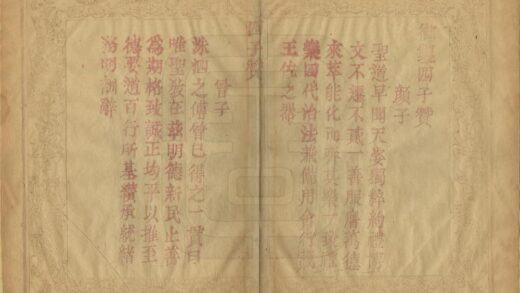 御製四子贊
顏子
聖道早聞天姿獨粹約禮博
文不遷不貳一善服膺萬德
來萃能化而齊其樂一致禮
樂四代治法兼備用舍行藏
王佐之器
四子贊
曾子
洙泗之傳魯已得之一貫曰
唯聖學在茲明德新民止善
為期格致誠正均平以推至
德要道百行所基纘承統緒
修明訓辭